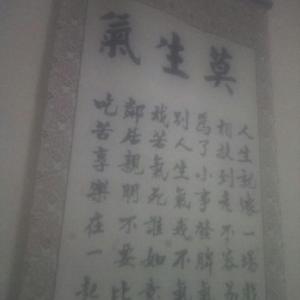 莫生氣
人生就像一場戲
相扶到老不容易
為了小事發脾氣
別人生氣我不氣
我若氣死誰如意
鄰居親朋不要比
吃苦享樂在一起